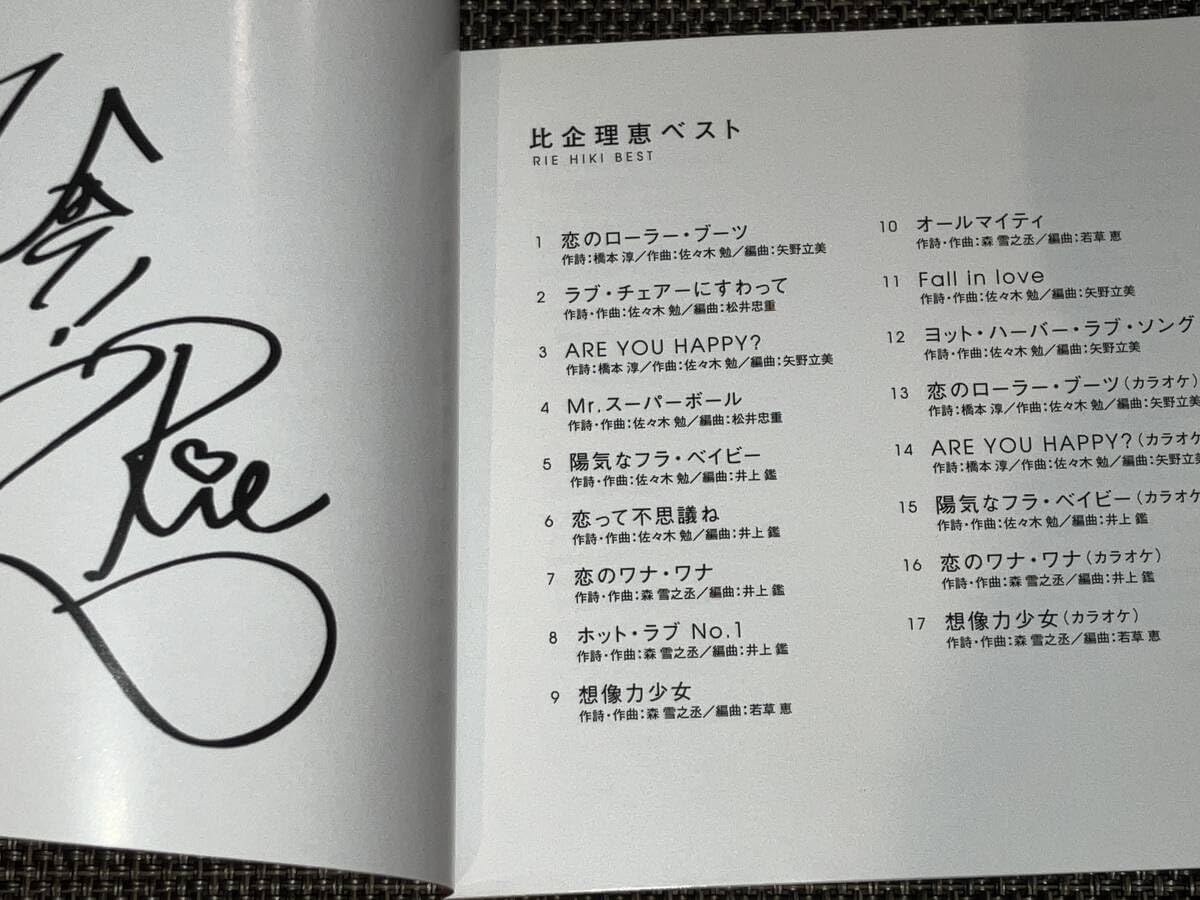 今!!
Rie
比企理恵ベスト
RIE HIKI BEST
1 恋のローラー・ブーツ
作詩:橋本 淳/作曲:佐々木 勉/編曲:矢野立美
2 ラブ・チェアーにすわって
作詩・作曲:佐々木 勉/編曲:松井忠重
3 ARE YOU HAPPY?
作詩:橋本 淳/作曲:佐々木 勉/編曲:矢野立美
4 Mr.スーパーボール
作詩・作曲:佐々木 勉/編曲:松井忠重
5 陽気なフラ・ベイビー
作詩・作曲:佐々木 勉/編曲:井上 鑑
6 恋って不思議ね
作詩・作曲:佐々木 勉/編曲:井上 鑑
7 恋のワナ・ワナ
作詩・作曲:森 雪之丞/編曲:井上 鑑
8 ホット・ラブ No.1
作詩・作曲:森 雪之丞/編曲:井上 鑑
9 想像力少女
作詩・作曲:森 雪之丞/編曲:若草 恵
10 オールマイティ
作詩・作曲:森 雪之丞/編曲:若草 恵
11 Fall in love
作詩・作曲:佐々木 勉/編曲:矢野立美
12 ヨット・ハーバー・ラブ・ソング
作詩・作曲:佐々木 勉/編曲:矢野立美
13 恋のローラー・ブーツ(カラオケ)
作詩:橋本 淳/作曲:佐々木 勉/編曲:矢野立美
14 ARE YOU HAPPY?(カラオケ
作詩:橋本 淳/作曲:佐々木 勉/編曲:矢野立美
15 陽気なフラ・ベイビー(カラオケ
作詩・作曲:佐々木 勉/編曲:井上 鑑
16 恋のワナ・ワナ(カラオケ)
作詩・作曲:森 雪之丞/編曲:井上 鑑
17 想像力少女(カラオケ)
作詩・作曲:森 雪之丞/編曲:若草 恵